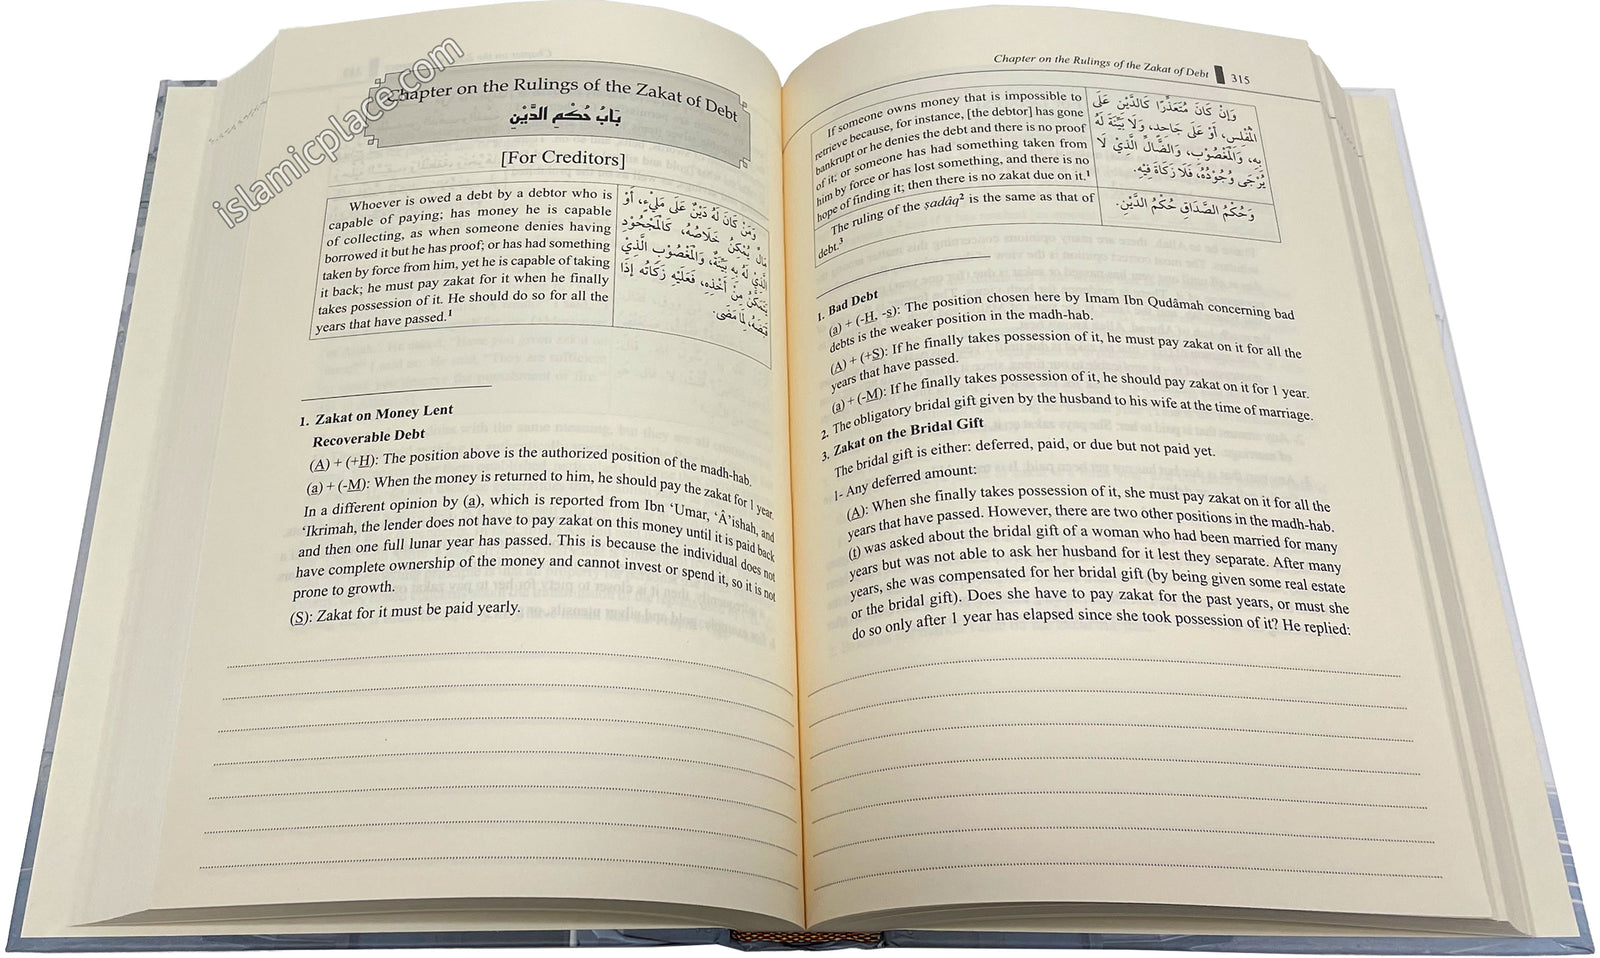 islamicplace.com
Chapter on the Rulings of the Zakat of Debt
بَابُ حُكْمِ الدَّيْنِ
[For Creditors]
Whoever is owed a debt by a debtor who is
capable of paying; has money he is capable
of collecting, as when someone denies having
borrowed it but he has proof; or has had something
taken by force from him, yet he is capable of taking
it back; he must pay zakat for it when he finally
takes possession of it. He should do so for all the
years that have passed.¹
وَمَنْ كَانَ لَهُ دَيْنٌ عَلَى مَلِيْءٍ، أَوْ
مَالٌ يُمْكِنُ خَلَاصُهُ، كَالْمَجْحُودِ
الَّذِي لَهُ بِهِ بَيِّنَةٌ، وَالْمَغْصُوْبِ الَّذِيْ
يَتَمَكَّنُ مِنْ أَخْذِهِ، فَعَلَيْهِ زَكَاتُه إِذَا
قَبَضَهُ، لِمَا مَضَى.
1. Zakat on Money Lent
Recoverable Debt
(A) + (+H): The position above is the authorized position of the madh-hab.
(a) + (-M): When the money is returned to him, he should pay the zakat for 1 year.
In a different opinion by (a), which is reported from Ibn ‘Umar, ‘Â’ishah, and
‘Ikrimah, the lender does not have to pay zakat on this money until it is paid back
and then one full lunar year has passed. This is because the individual does not
have complete ownership of the money and cannot invest or spend it, so it is not
prone to growth.
(S): Zakat for it must be paid yearly.
Chapter on the Rulings of the Zakat of Debt 315
If someone owns money that is impossible to
retrieve because, for instance, [the debtor] has gone
bankrupt or he denies the debt and there is no proof
of it; or someone has had something taken from
him by force or has lost something, and there is no
hope of finding it; then there is no zakat due on it.¹
وَإِنْ كَانَ مُتَعَذِّرًا كَالدَّيْنِ عَلَى
الْمُفْلِسِ، أَوْ عَلَى جَاحِدٍ، وَلَا بَيِّنَةَ لَهُ
بِهِ، وَالْمَغْصُوْبِ، وَالضَّالِّ الَّذِيْ لَا
يُرْجَى وُجُوْدُهُ، فَلَا زَكَاةَ فِيْهِ.
The ruling of the ṣadâq² is the same as that of
debt.³
وَحُكْمُ الصَّدَاقِ حُكْمُ الدَّيْنِ.
1. Bad Debt
(a) + (-H, -s): The position chosen here by Imam Ibn Qudâmah concerning bad
debts is the weaker position in the madh-hab.
(A) + (+S): If he finally takes possession of it, he must pay zakat on it for all the
years that have passed.
(a) + (-M): If he finally takes possession of it, he should pay zakat on it for 1 year.
2. The obligatory bridal gift given by the husband to his wife at the time of marriage.
3. Zakat on the Bridal Gift
The bridal gift is either: deferred, paid, or due but not paid yet.
1- Any deferred amount:
(A): When she finally takes possession of it, she must pay zakat on it for all the
years that have passed. However, there are two other positions in the madh-hab.
(t) was asked about the bridal gift of a woman who had been married for many
years but was not able to ask her husband for it lest they separate. After many
years, she was compensated for her bridal gift (by being given some real estate
or the bridal gift). Does she have to pay zakat for the past years, or must she
do so only after 1 year has elapsed since she took possession of it? He replied: